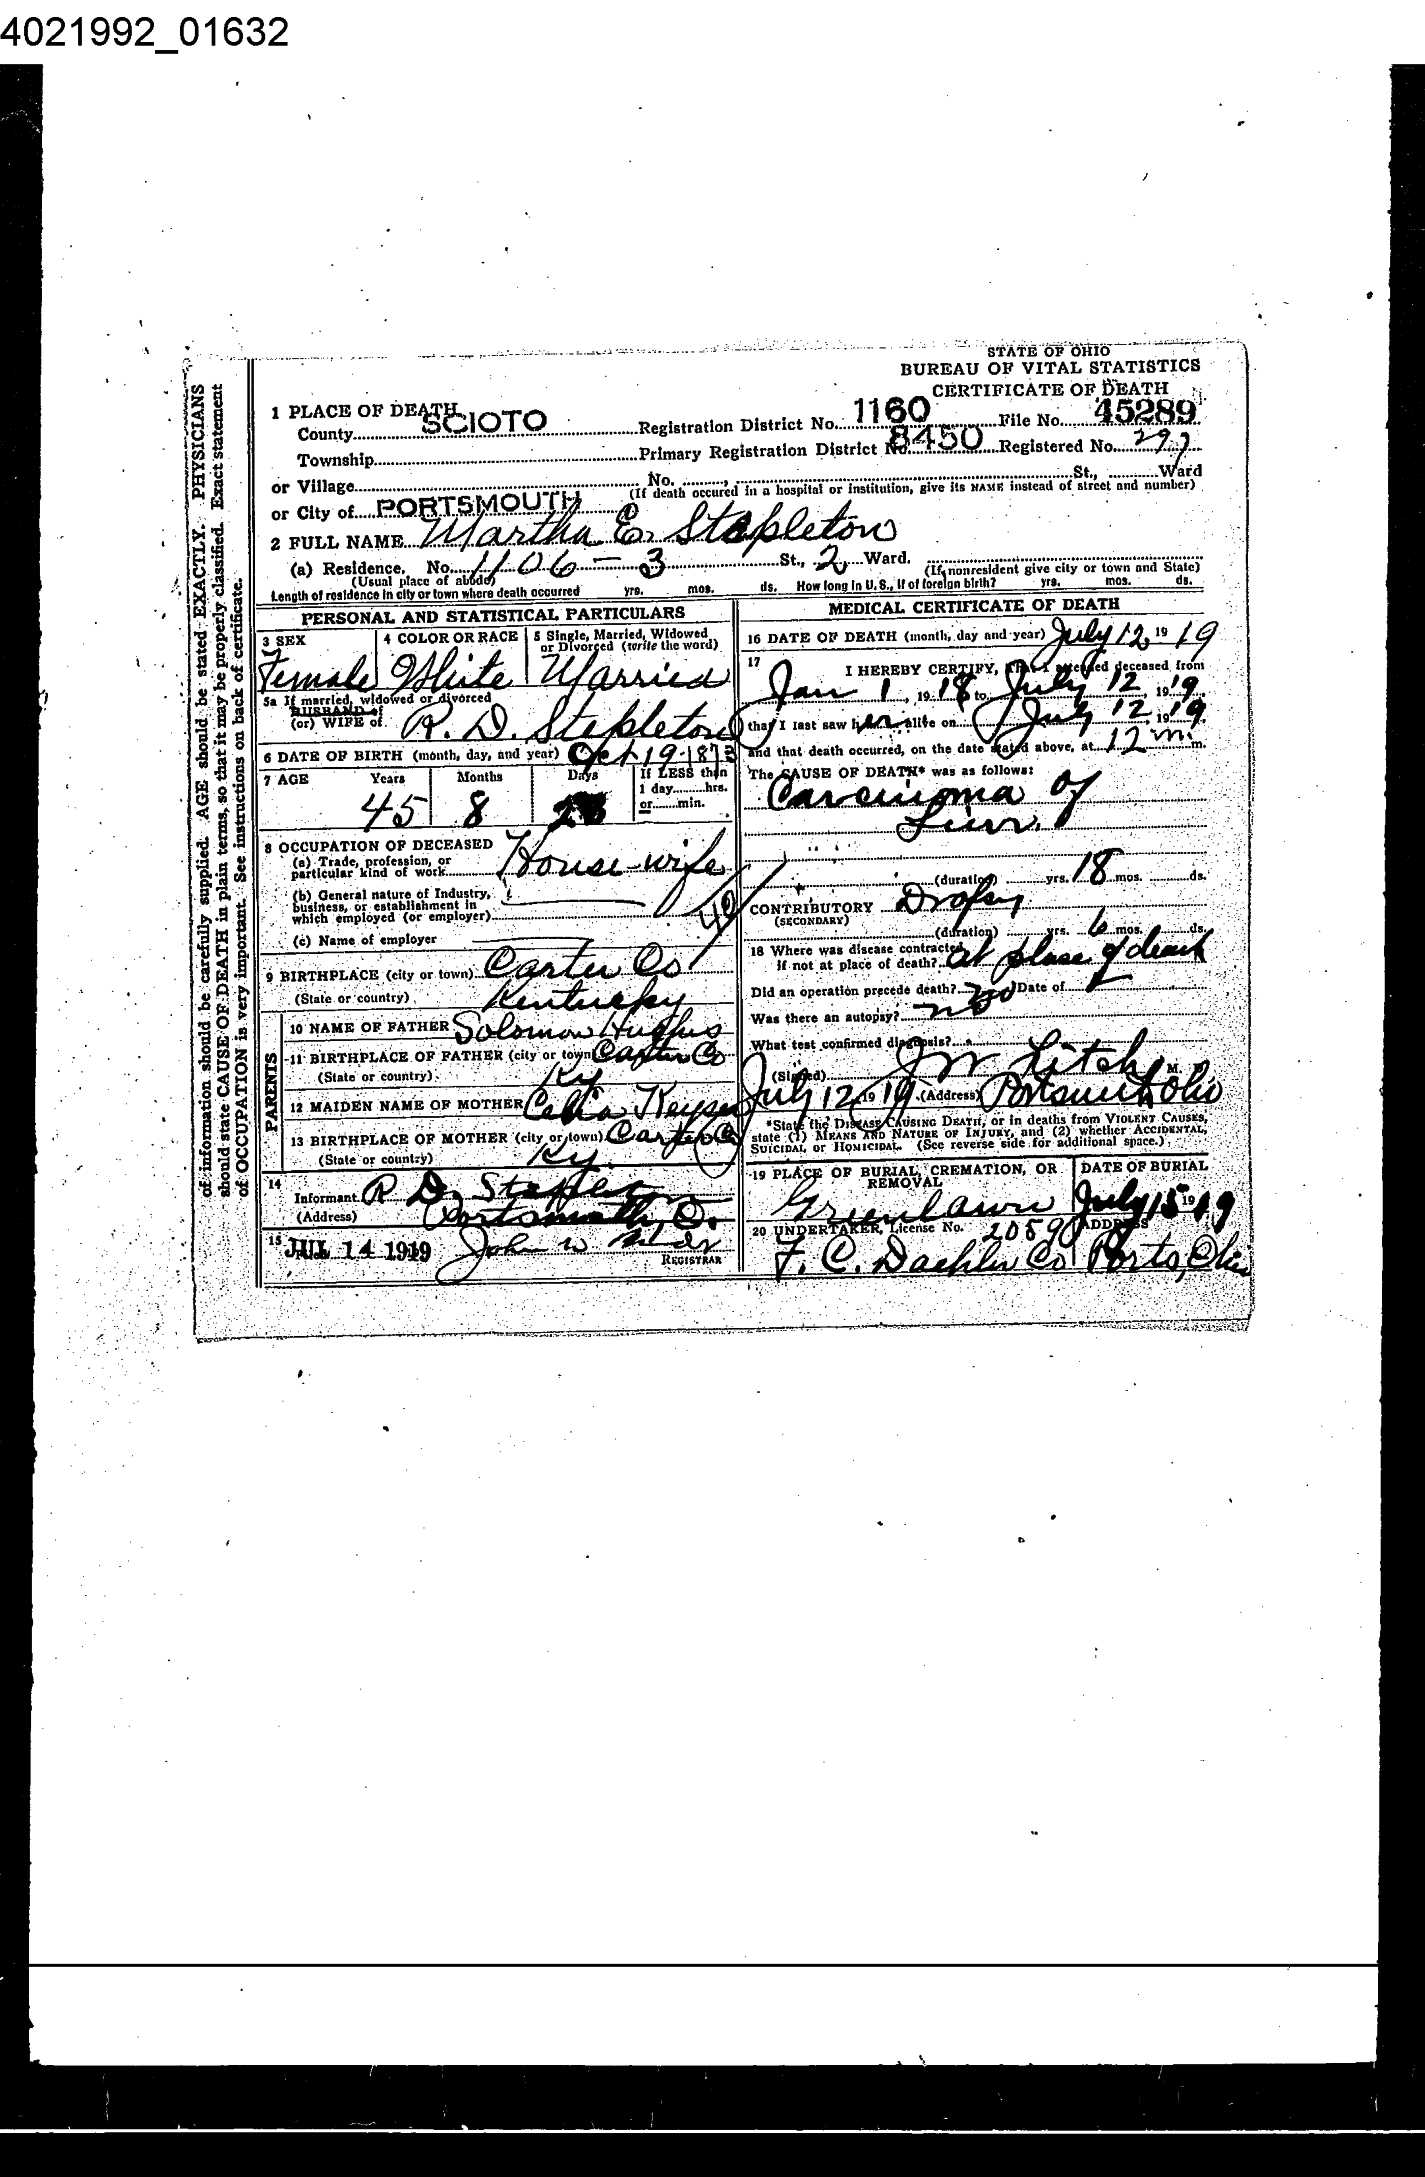 4021992_01632
STATE OF OHIO
BUREAU OF VITAL STATISTICS
CERTIFICATE OF DEATH
1 PLACE OF DEATH
County SCIOTO Registration District No. 1160 File No. 45289
Township Primary Registration District No. 8450 Registered No. 297
or Village No. St., Ward
(If death occured in a hospital or institution, give its NAME instead of street and number)
or City of PORTSMOUTH
2 FULL NAME Martha E. Stapleton
(a) Residence. No. 1106 - 3 St., 2 Ward.
(Usual place of abode) (If nonresident give city or town and State)
Length of residence in city or town where death occurred yrs. mos. ds. How long in U. S., if of foreign birth? yrs. mos. ds.
PERSONAL AND STATISTICAL PARTICULARS
3 SEX Female
4 COLOR OR RACE White
5 Single, Married, Widowed or Divorced (write the word) Married
5a If married, widowed or divorced
HUSBAND of
(or) WIFE of R. D. Stapleton
6 DATE OF BIRTH (month, day, and year) Oct 19-1873
7 AGE Years Months Days If LESS than
1 day hrs.
or min.
45 8
8 OCCUPATION OF DECEASED
(a) Trade, profession, or
particular kind of work House-wife
(b) General nature of Industry,
business, or establishment in
which employed (or employer)
(c) Name of employer
9 BIRTHPLACE (city or town) Carter Co
(State or country) Kentucky
PARENTS
10 NAME OF FATHER Solomon Hughes
11 BIRTHPLACE OF FATHER (city or town) Carter Co
(State or country) Ky
12 MAIDEN NAME OF MOTHER Celia Keyser
13 BIRTHPLACE OF MOTHER (city or town) Carter Co
(State or country) Ky.
14
Informant R D. Stapleton
(Address) Portsmouth, O.
15 JUL 14 1919 John W
REGISTRAR
MEDICAL CERTIFICATE OF DEATH
16 DATE OF DEATH (month, day and year) July 12 1919
17 I HEREBY CERTIFY, that I attended deceased from
Jan 1, 1918 to July 12, 1919
that I last saw her alive on July 12 1919
and that death occurred, on the date stated above, at 12 m. m.
The CAUSE OF DEATH* was as follows:
Carcinoma of
Liver.
(duration) yrs. 18 mos. ds.
CONTRIBUTORY Dropsy
(SECONDARY)
(duration) yrs. 6 mos. ds.
18 Where was disease contracted
if not at place of death? at place of death
Did an operation precede death? no Date of
Was there an autopsy? no
What test confirmed diagnosis?
(Signed) J W Fitch M. D.
July 12, 1919 (Address) Portsmouth Ohio
*State the DISEASE CAUSING DEATH, or in deaths from VIOLENT CAUSES,
state (1) MEANS AND NATURE OF INJURY, and (2) whether ACCIDENTAL,
SUICIDAL or HOMICIDAL. (See reverse side for additional space.)
19 PLACE OF BURIAL, CREMATION, OR REMOVAL Greenlawn
DATE OF BURIAL July 15 1919
20 UNDERTAKER, License No. 2059
F. C. Daehler Co
ADDRESS Ports, Ohio
of information should be carefully supplied. AGE should be stated EXACTLY. PHYSICIANS
should state CAUSE OF DEATH in plain terms, so that it may be properly classified. Exact statement
of OCCUPATION is very important. See instructions on back of certificate.